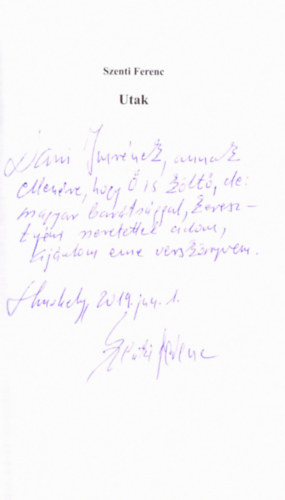 Szenti Ferenc
Utak
Dani Imrének, annak
ellenére, hogy Ő is költő, de:
magyar barátsággal, keresz-
tyéni szeretettel adom,
ajánlom eme verskönyvem.
2019. jun. 1.
Szenti Ferenc